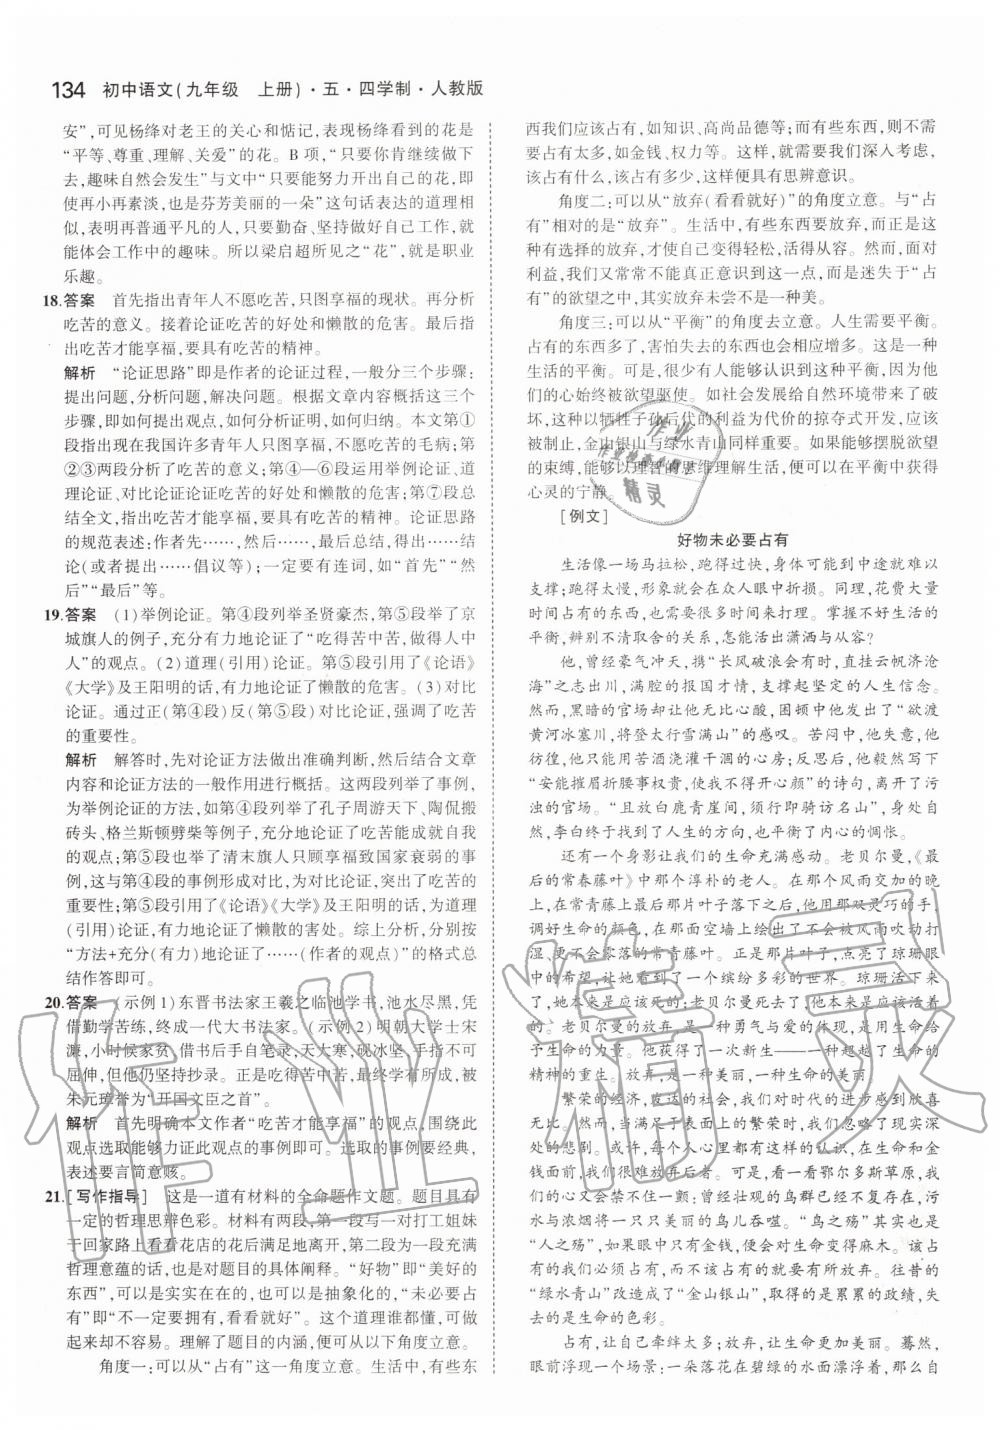 134 初中语文(九年级 上册)·五·四学制·人教版
安”,可见杨绛对老王的关心和惦记,表现杨绛看到的花是
“平等、尊重、理解、关爱”的花。B 项,“只要你肯继续做下
去,趣味自然会发生”与文中“只要能努力开出自己的花,即
使再小再素淡,也是芬芳美丽的一朵”这句话表达的道理相
似,表明再普通平凡的人,只要勤奋、坚持做好自己工作,就
能体会工作中的趣味。所以梁启超所见之“花”,就是职业
乐趣。
18.答案 首先指出青年人不愿吃苦,只图享福的现状。再分析
吃苦的意义。接着论证吃苦的好处和懒散的危害。最后指
出吃苦才能享福,要具有吃苦的精神。
解析 “论证思路”即是作者的论证过程,一般分三个步骤:
提出问题,分析问题,解决问题。根据文章内容概括这三个
步骤,即如何提出观点,如何分析证明,如何归纳。本文第①
段指出现在我国许多青年人只图享福,不愿吃苦的毛病;第
②③两段分析了吃苦的意义;第④—⑥段运用举例论证、道
理论证、对比论证论证吃苦的好处和懒散的危害;第⑦段总
结全文,指出吃苦才能享福,要具有吃苦的精神。论证思路
的规范表述:作者先……,然后……,最后总结,得出……结
论(或者提出……倡议等);一定要有连词,如“首先”“然
后”“最后”等。
19.答案 (1)举例论证。第④段列举圣贤豪杰,第⑤段举了京
城旗人的例子,充分有力地论证了“吃得苦中苦,做得人中
人”的观点。(2)道理(引用)论证。第⑤段引用了《论语》
《大学》及王阳明的话,有力地论证了懒散的危害。(3)对比
论证。通过正(第④段)反(第⑤段)对比论证,强调了吃苦
的重要性。
解析 解答时,先对论证方法做出准确判断,然后结合文章
内容和论证方法的一般作用进行概括。这两段列举了事例,
为举例论证的方法,如第④段列举了孔子周游天下、陶侃搬
砖头、格兰斯顿劈柴等例子,充分论证了吃苦能成就自我
的观点;第⑤段也举了清末旗人只顾享福致国家衰弱的事
例,这与第④段的事例形成对比,为对比论证,突出了吃苦的
重要性;第⑤段引用了《论语》《大学》及王阳明的话,为道理
(引用)论证,有力地论证了懒散的害处。综上分析,分别按
“方法+充分(有力)地论证了……(作者的观点)”的格式总
结作答即可。
20.答案 (示例1)东晋书法家王羲之临池学书,池水尽黑,凭
借勤学苦练,终成一代大书法家。(示例2)明朝大学士宋
濂,小时候家贫,借书后手自笔录,天大寒,砚冰坚,手指不可
屈伸,但他仍坚持抄录。正是吃得苦中苦,最终学有所成,被
朱元璋誉为“开国文臣之首”。
解析 首先明确本文作者“吃苦才能享福”的观点,围绕此
观点选取能够论证此观点的事例即可。选取事例要经典,
表述要言简意赅。
21.[写作指导] 这是一道有材料的全命题作文题。题目具有
一定的哲理思辨色彩。材料有两段,第一段写一对打工姐妹
于回家路上看看花店的花后满足地离开,第二段为一段充满
哲理意蕴的话,也是对题目的具体阐释。“好物”即“美好的
东西”,可以是实实在在的东西,也可以是抽象化的,“未必要占
有”即“不一定要拥有,看看就好”。这个道理谁都懂,可做
起来却不容易。理解了题目的内涵,便可从以下角度立意。
角度一:可以从“占有”这一角度立意。生活中,有些东
西我们应该占有,如知识、高尚品德等;而有些东西,则不需
要占有太多,如金钱、权力等。这样,就需要我们深入考虑,
该占有什么,该占有多少。这样,就具有了思辨意识。
角度二:可以从“放弃(看看就好)”的角度立意。与“占
有”相对的是“放弃”。生活中,有些东西要放弃,而正是这种
有选择的放弃,才使自己变得轻松,活得从容。然而,面对
利益,我们又常常不能真正意识到这一点,而是迷失于“占
有”的欲望之中,其实放弃未尝不是一种美。
角度三:可以从“平衡”的角度去立意。人生需要平衡。
占有的东西多了,害怕失去;失去的东西多了,这是一种
生活的平衡。可是,很少有人能够认识到这种平衡,因为他
们的心始终被欲望驱使。如社会发展给自然环境带来了破
坏,这种以牺牲子孙后代的利益为代价的掠夺式开发,应该
被制止,金山银山与绿水青山同样重要。如果能够摆脱欲望
的束缚,能够以理智的思维理解生活,便可以在平衡中获得
心灵的宁静。
[例文]
好物未必要占有
生活像一场马拉松,跑得过快,身体可能在中途就难以
支撑;跑得太慢,形象就会在众人眼中折损。同理,花费大量
时间占有的东西,也需要花大量时间来打理。掌握不好生活的
平衡,辨别不清取舍的关系,怎能活出潇洒与从容?
他,曾经豪气冲天,携“长风破浪会有时,直挂云帆济沧
海”之志出川,满腔的报国才情,支撑起坚定的人生信念。
然而,黑暗的官场却让他无比心酸,困顿中他发出了“欲渡
黄河冰塞川,将登太行雪满山”的感叹。苦闷中,他失意,他
彷徨,他只能用苦酒浇灌干涸的心房;反思后,他羞愧写下
“安能摧眉折腰事权贵,使我不得开心颜”的诗句,离开了污
浊的官场。“且放白鹿青崖间,须行即骑访名山”,身处自
然,李白终于找到了人生的方向,也平衡了内心的惆怅。
还有一个身影让我们的生命充满感动。老贝尔曼,《最
后的常春藤叶》中那个淳朴的老人。在那个风雨交加的晚
上,在常青藤上最后一片叶子落下之后,他用那双灵巧的手,
以最合适的颜色,在那面空墙上绘出了不会被风雨吹动打
湿、不会零落的常青藤叶。正是那片叶子,点亮了琼珊眼
中的希望,让她看到了一个缤纷多彩的世界。琼珊活下来
了,她本来是应该死的;老贝尔曼死去了,他本来是应该活着
的。老贝尔曼的放弃,是一种勇气与爱的体现,是用生命给
予生命的力量。他获得了一次新生——一种超越了生命的
精神的重生。放弃,是一种美丽,一种生命的美丽。
繁荣的经济,发达的社会,我们对时代的进步感到欢欣
鼓舞。然而,如果在表面上的繁荣时分,忽略了深层的忧
虑,即是悲剧。或许,每个人心里都有这样的认识,在生命和金
钱面前,要毫不犹豫地放弃后者。可是,看一看鄂尔多斯草原,我
们的心真的承受不住一个颤:曾经美丽的鸟群已经不复存在,污
水与浓烟将一只只美丽的鸟儿吞噬。“鸟之殇”其实就是
“人之殇”,如果眼中只有金钱,便会对生命变得麻木。该占
有的东西我们去占有,而不该占有的东西就要有所放弃。往昔的
“绿水青山”改造成了“金山银山”,取得的是累累的政绩,失
去的是生命的色彩。
占有,让自己牵绊太多;放弃,让生命更加美丽。蓦然,
眼前浮现一个场景:一朵落花在碧绿的水面漂浮着,那么自